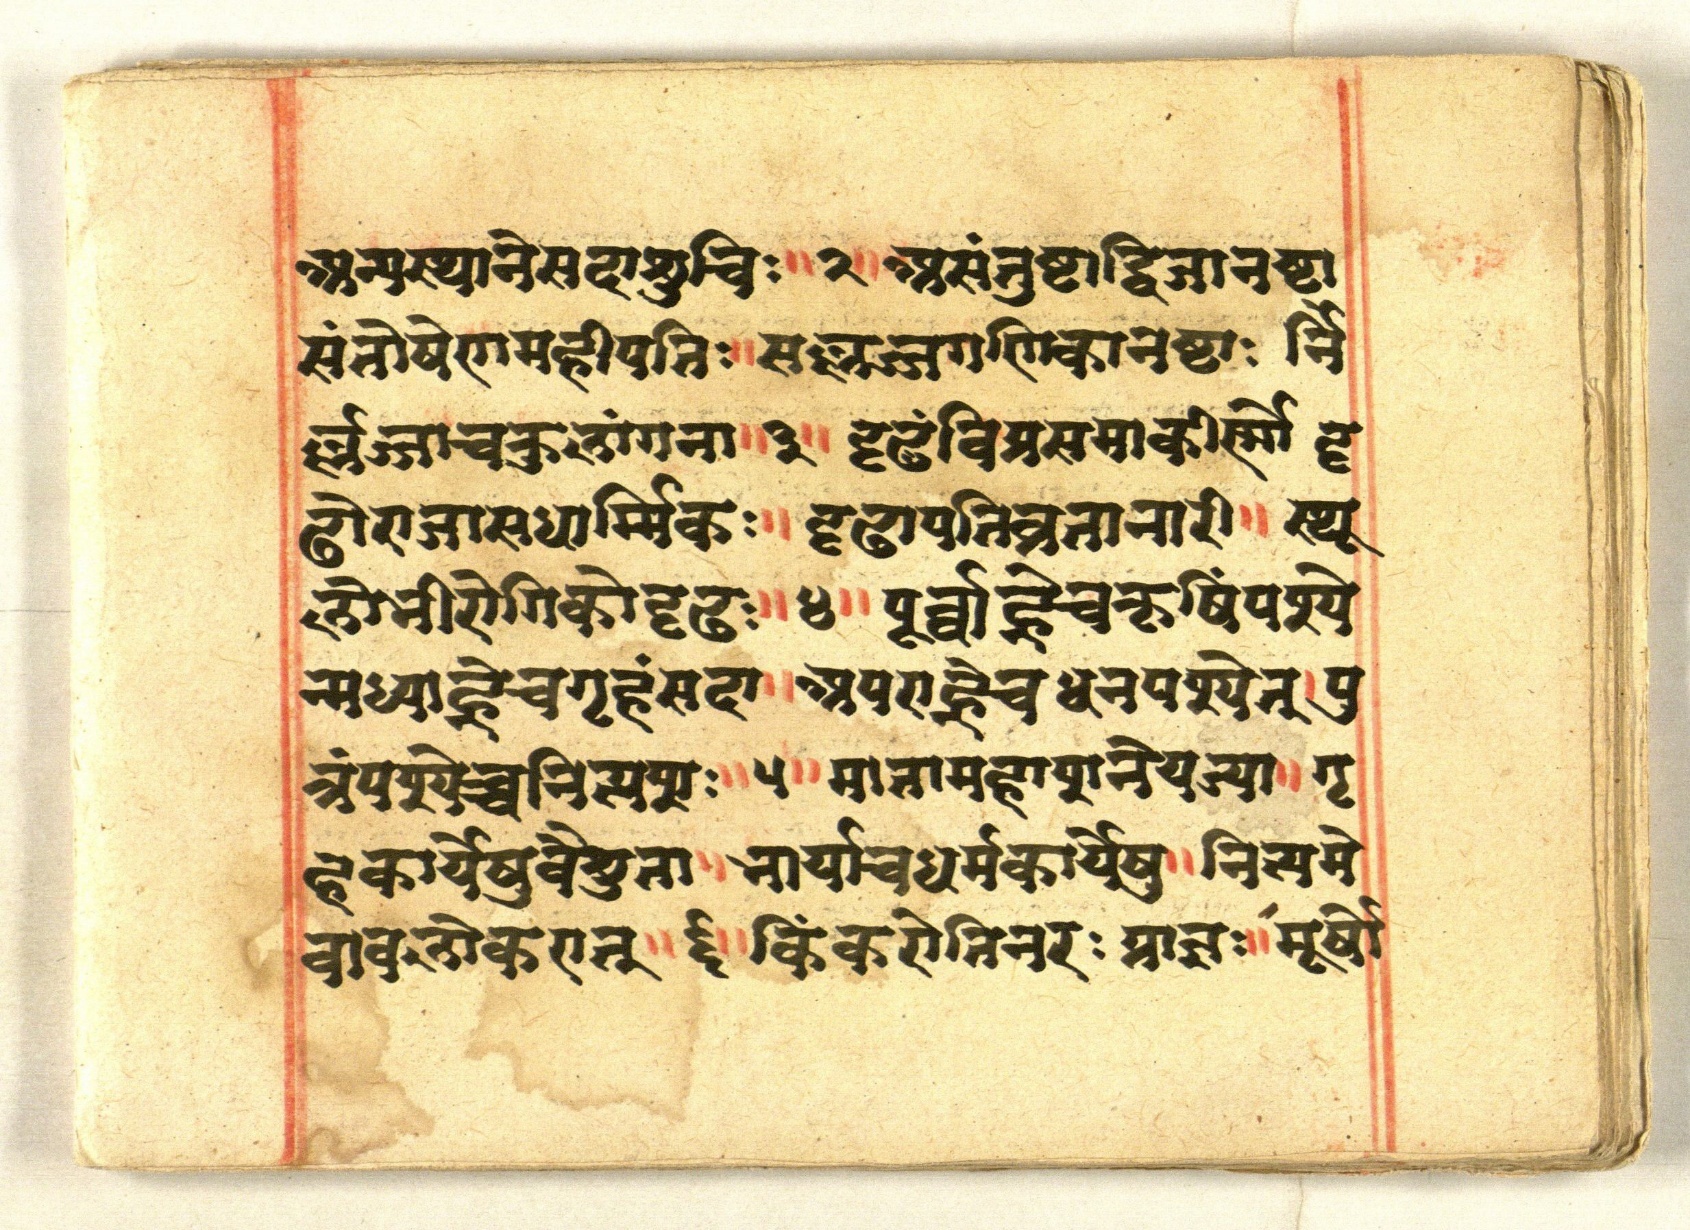 अन्यस्थानेसदाशुचिः॥२॥असंतुष्टाद्विजानष्टा
संतोषेणमहीपतिः॥सलज्जगणिकानष्टाः र्नि
र्ल्लज्जाचकुलांगना॥३॥दृढंविप्रसमाकीर्णो दृ
ढोराजासधार्म्मिकः॥दृढापतिव्रतानारी॥स्थू
लोनीरोगिकोदृढः॥४॥पूर्व्वाह्नेचकृषिंपश्ये
न्मध्याह्नेचगृहंसदा॥अपराह्नेचधनपश्येत्।पु
त्रंपश्येच्चनित्यशः॥५॥मातामहाशनेयत्या॥गृ
हकार्येषुवैशुता॥नार्याचधर्मकार्येषु॥नित्यमे
वावलोकरात्॥६॥किंकरोतिनरः प्राज्ञः॥मूर्षो